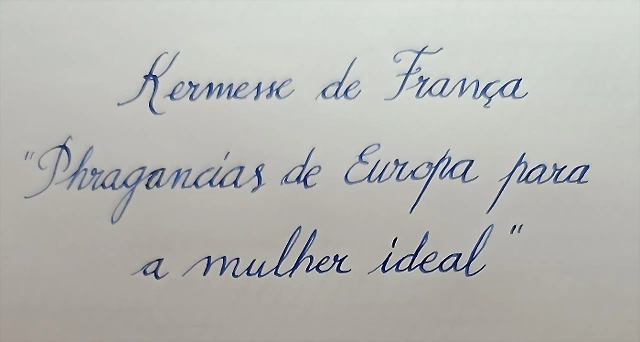 Kermesse de França
"Phragancias de Europa para
a mulher ideal"